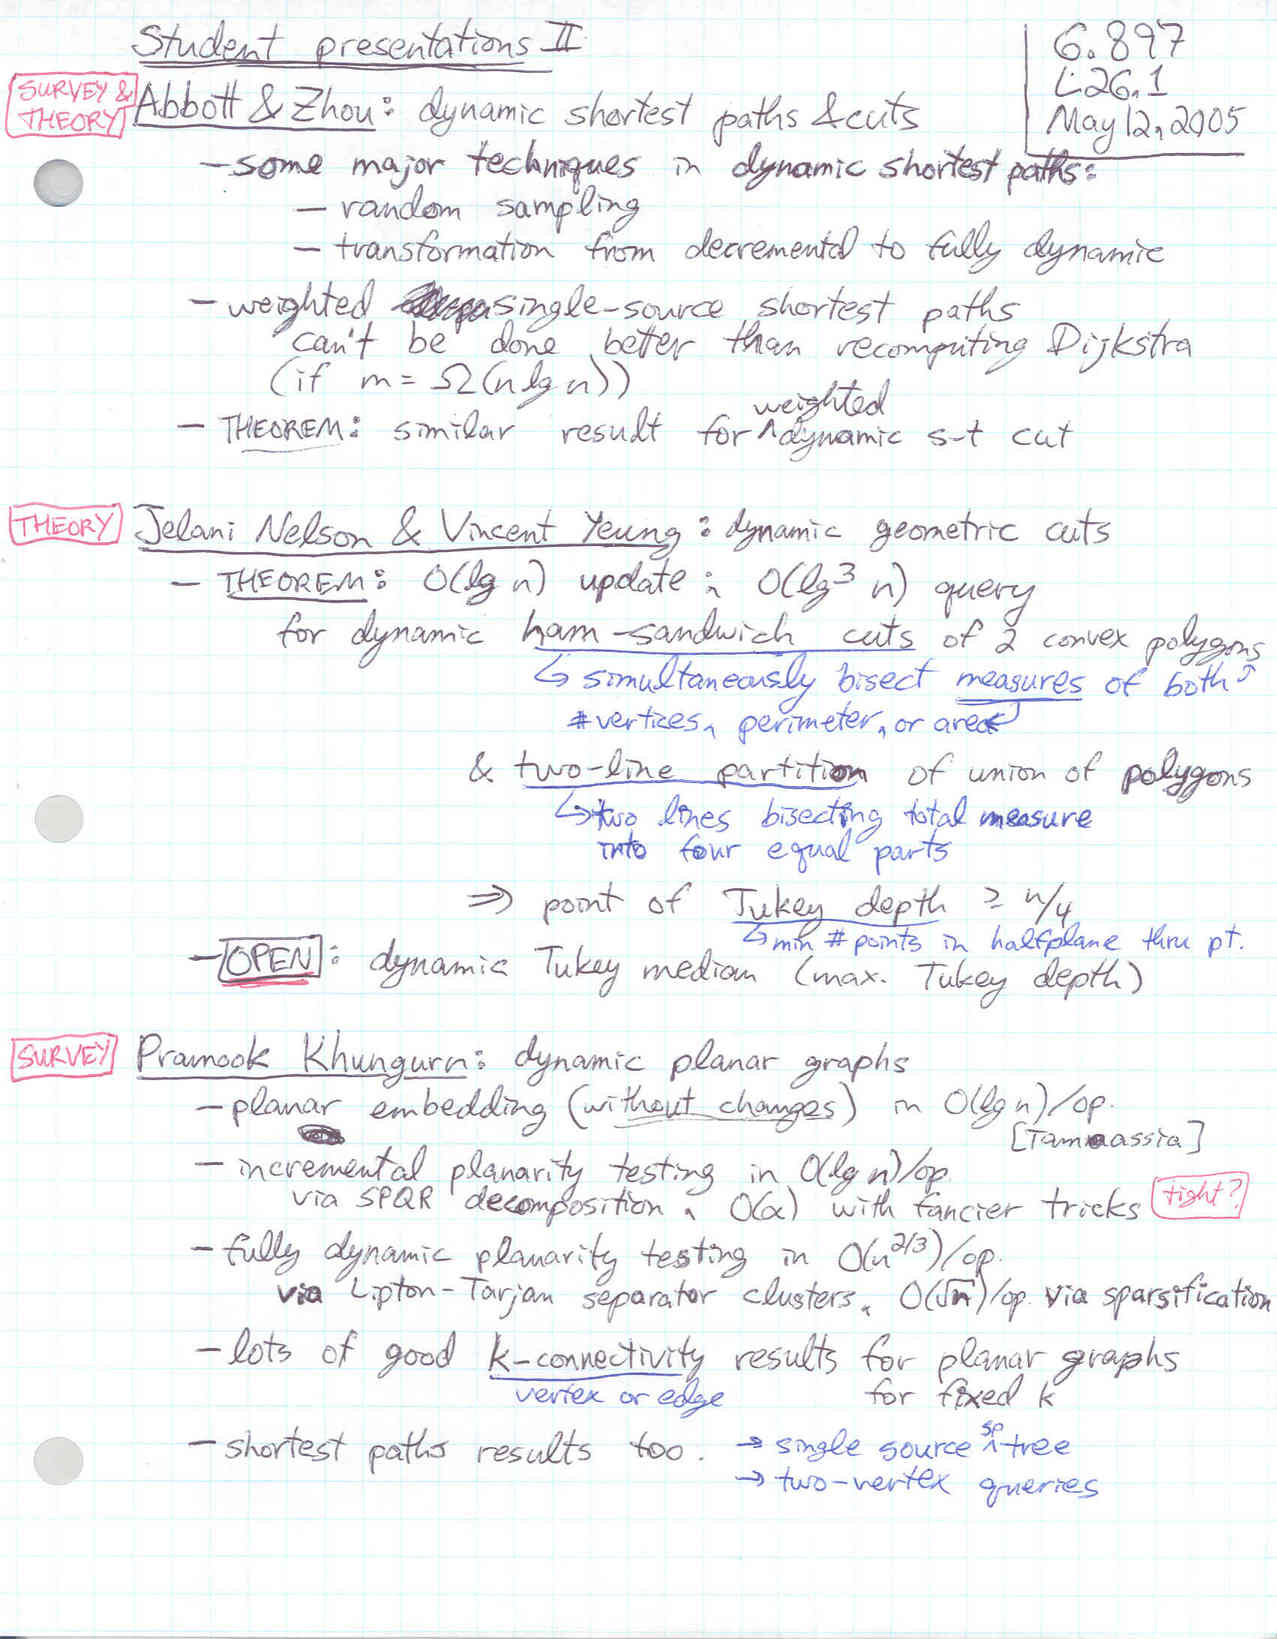 Student presentations II
6.897
L26.1
May 12, 2005
SURVEY & THEORY
Abbott & Zhou: dynamic shortest paths & cuts
– some major techniques in dynamic shortest paths:
– random sampling
– transformation from decremental to fully dynamic
– weighted single-source shortest paths
can't be done better than recomputing Dijkstra
(if m = Ω(n lg n))
– THEOREM: similar result for ^weighted dynamic s-t cut
THEORY
Jelani Nelson & Vincent Yeung: dynamic geometric cuts
– THEOREM: O(lg n) update, O(lg³ n) query
for dynamic ham-sandwich cuts of 2 convex polygons
↳ simultaneously bisect measures of both ↑
# vertices, perimeter, or area
& two-line partition of union of polygons
↳ two lines bisecting total measure
into four equal parts
⇒ point of Tukey depth ≥ n/4
↳ min # points in halfplane thru pt.
– OPEN: dynamic Tukey median (max. Tukey depth)
SURVEY
Pramook Khungurn: dynamic planar graphs
– planar embedding (without changes) in O(lg n)/op.
[Tamassia]
– incremental planarity testing in O(lg n)/op.
via SPQR decomposition, O(α) with fancier tricks
tight?
– fully dynamic planarity testing in O(n^2/3)/op.
via Lipton-Tarjan separator clusters, O(√n)/op. via sparsification
– lots of good k-connectivity results for planar graphs
vertex or edge for fixed k
– shortest paths results too. → single source ^sp tree
→ two-vertex queries